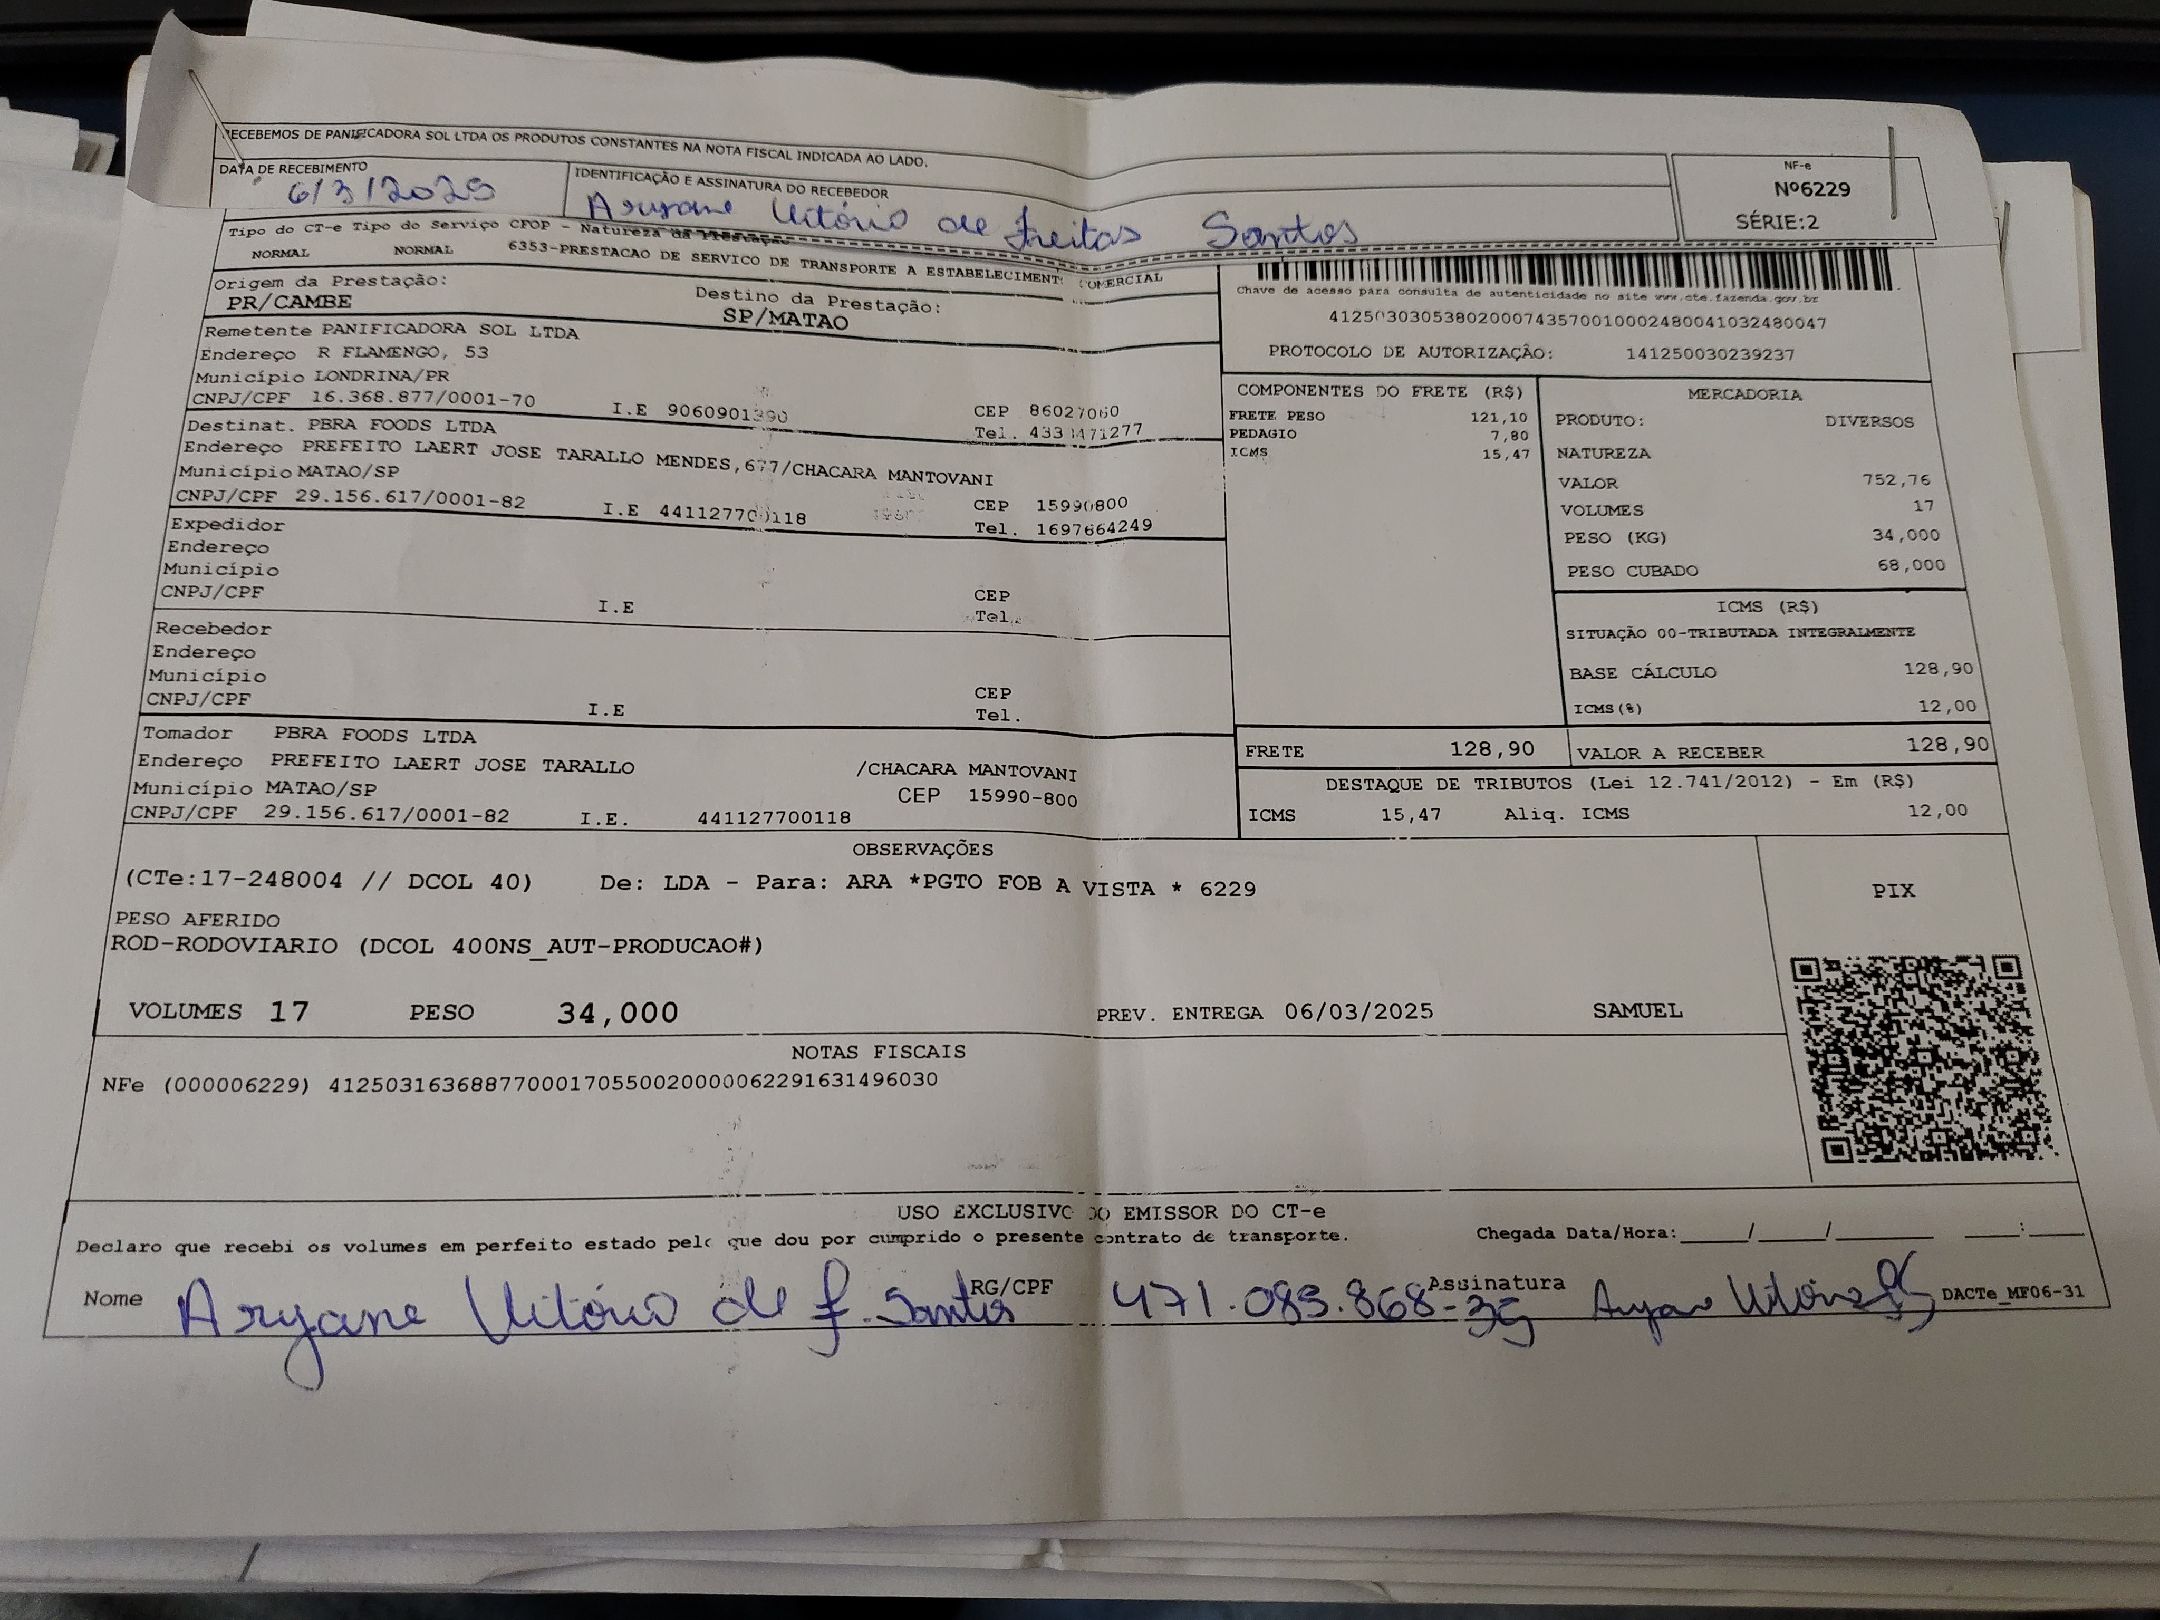 RECEBEMOS DE PANIFICADORA SOL LTDA OS PRODUTOS CONSTANTES NA NOTA FISCAL INDICADA AO LADO.
DATA DE RECEBIMENTO
6/3/2025
IDENTIFICAÇÃO E ASSINATURA DO RECEBEDOR
Aryane Vitório de Freitas Santos
NF-e
Nº6229
SÉRIE:2
Tipo do CT-e Tipo do Serviço CFOP - Natureza da Prestação
NORMAL NORMAL 6353-PRESTACAO DE SERVICO DE TRANSPORTE A ESTABELECIMENT COMERCIAL
Origem da Prestação:
PR/CAMBE
Destino da Prestação:
SP/MATAO
Chave de acesso para consulta de autenticidade no site www.cte.fazenda.gov.br
41250303053802000743570010002480041032480047
PROTOCOLO DE AUTORIZAÇÃO: 141250030239237
Remetente PANIFICADORA SOL LTDA
Endereço R FLAMENGO, 53
Município LONDRINA/PR
CNPJ/CPF 16.368.877/0001-70 I.E 9060901390 CEP 86027060
Tel. 4333471277
Destinat. PBRA FOODS LTDA
Endereço PREFEITO LAERT JOSE TARALLO MENDES,677/CHACARA MANTOVANI
Município MATAO/SP
CNPJ/CPF 29.156.617/0001-82 I.E 441127700118 CEP 15990800
Tel. 1697664249
Expedidor
Endereço
Município
CNPJ/CPF I.E CEP
Tel.
Recebedor
Endereço
Município
CNPJ/CPF I.E CEP
Tel.
Tomador PBRA FOODS LTDA
Endereço PREFEITO LAERT JOSE TARALLO /CHACARA MANTOVANI
Município MATAO/SP CEP 15990-800
CNPJ/CPF 29.156.617/0001-82 I.E. 441127700118
COMPONENTES DO FRETE (R$)
FRETE PESO 121,10
PEDAGIO 7,80
ICMS 15,47
MERCADORIA
PRODUTO: DIVERSOS
NATUREZA
VALOR 752,76
VOLUMES 17
PESO (KG) 34,000
PESO CUBADO 68,000
ICMS (R$)
SITUAÇÃO 00-TRIBUTADA INTEGRALMENTE
BASE CÁLCULO 128,90
ICMS(%) 12,00
FRETE 128,90 VALOR A RECEBER 128,90
DESTAQUE DE TRIBUTOS (Lei 12.741/2012) - Em (R$)
ICMS 15,47 Aliq. ICMS 12,00
OBSERVAÇÕES
(CTe:17-248004 // DCOL 40) De: LDA - Para: ARA *PGTO FOB A VISTA * 6229
PIX
PESO AFERIDO
ROD-RODOVIARIO (DCOL 400NS_AUT-PRODUCAO#)
VOLUMES 17 PESO 34,000 PREV. ENTREGA 06/03/2025 SAMUEL
NOTAS FISCAIS
NFe (000006229) 41250316368877000170550020000062291631496030
USO EXCLUSIVO DO EMISSOR DO CT-e
Declaro que recebi os volumes em perfeito estado pelo que dou por cumprido o presente contrato de transporte. Chegada Data/Hora:____/____/______ ___:___
Nome Aryane Vitório de F. Santos RG/CPF 471.083.868-35 Assinatura DACTe_MF06-31